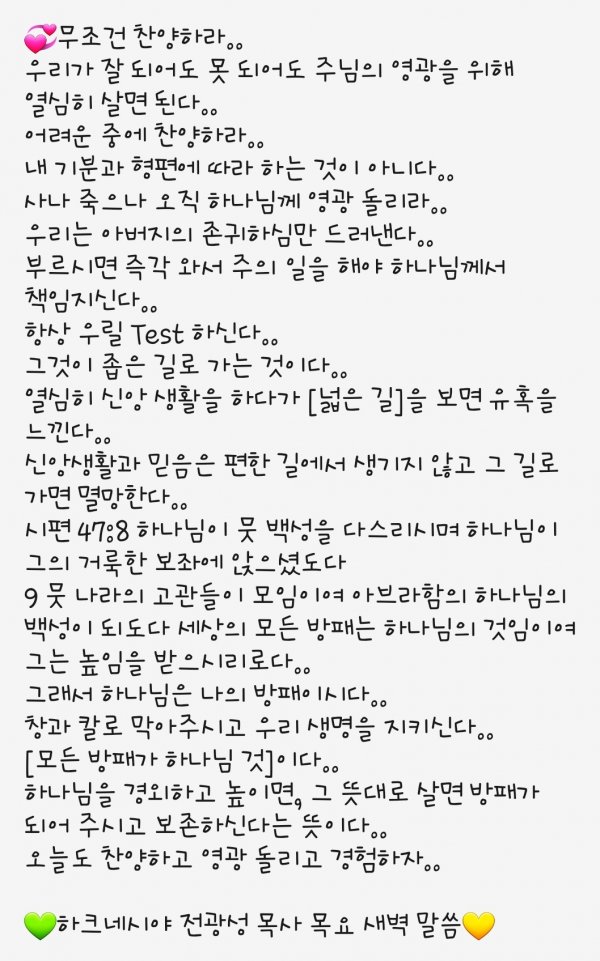 💞무조건 찬양하라..
우리가 잘 되어도 못 되어도 주님의 영광을 위해
열심히 살면 된다..
어려운 중에 찬양하라..
내 기분과 형편에 따라 하는 것이 아니다..
사나 죽으나 오직 하나님께 영광 돌리라..
우리는 아버지의 존귀하심만 드러낸다..
부르시면 즉각 와서 주의 일을 해야 하나님께서
책임지신다..
항상 우릴 Test 하신다..
그것이 좁은 길로 가는 것이다..
열심히 신앙 생활을 하다가 [넓은 길]을 보면 유혹을
느낀다..
신앙생활과 믿음은 편한 길에서 생기지 않고 그 길로
가면 멸망한다..
시편 47:8 하나님이 뭇 백성을 다스리시며 하나님이
그의 거룩한 보좌에 앉으셨도다
9 뭇 나라의 고관들이 모임이여 아브라함의 하나님의
백성이 되도다 세상의 모든 방패는 하나님의 것임이여
그는 높임을 받으시리로다..
그래서 하나님은 나의 방패이시다..
창과 칼로 막아주시고 우리 생명을 지키신다..
[모든 방패가 하나님 것]이다..
하나님을 경외하고 높이면, 그 뜻대로 살면 방패가
되어 주시고 보존하신다는 뜻이다..
오늘도 찬양하고 영광 돌리고 경험하자..
💚하크네시야 전광성 목사 목요 새벽 말씀💛